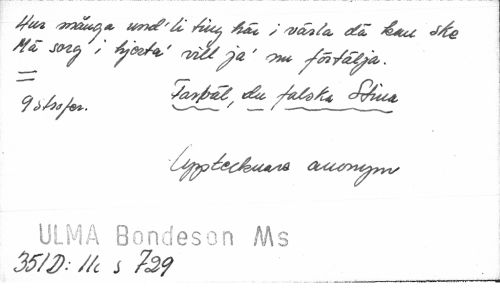 Hur många und'li ting här i värla då kan ske
Må sorg i hjerta' vill ja' nu förtälja.
=
9 strofer.
Farväl, du falska Stina
Upptecknare anonym
ULMA Bondeson Ms
351D: 11c s 729